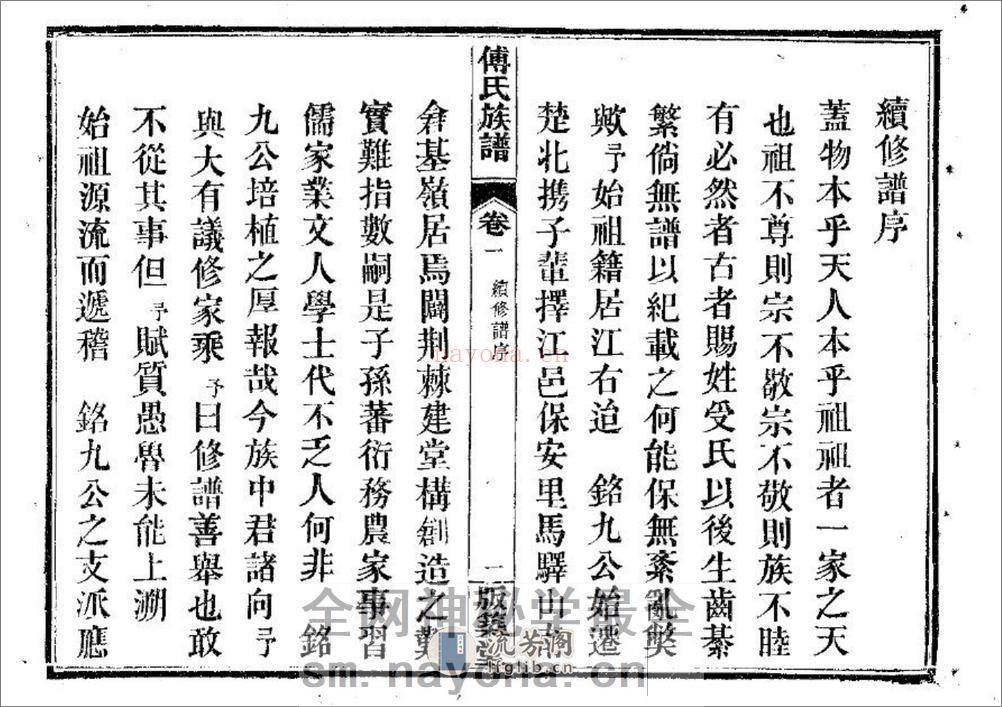 續修譜序
蓋物本乎天人本乎祖祖者一家之天
也祖不尊則宗不敬宗不敬則族不睦
有必然者古者賜姓受氏以後生齒綦
繁倘無譜以紀載之何能保無紊亂獘
歟予始祖籍居江右迨 銘九公始遷
楚北携子輩擇江邑保安里馬驛山
傅氏族譜
卷一
續修譜序
一
版築堂
倉基嶺居焉闢荆棘建堂構創造之難
實難指數嗣是子孫蕃衍務農家事習
儒家業文人學士代不乏人何非 銘
九公培植之厚報哉今族中君諸向予
與大有議修家乘予曰修譜善舉也敢
不從其事但予賦質愚魯未能上溯
始祖源流而遞稽 銘九公之支派應
nayona.cn
全网神秘学最全
sm.nayona.cn
流芳阁
lfglib.cn